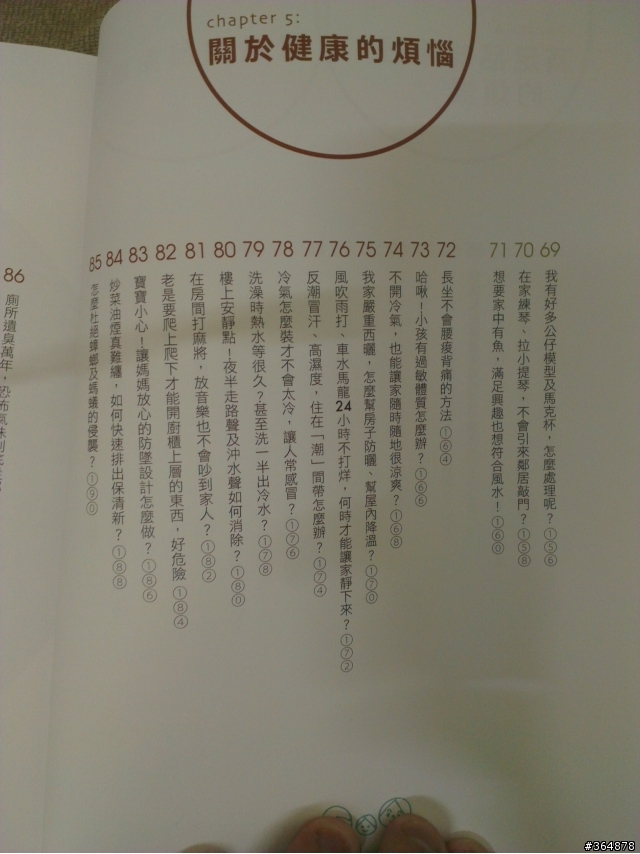 chapter 5:
關於健康的煩惱
69 我有好多公仔模型及馬克杯，怎麼處理呢？156
70 在家練琴、拉小提琴，不會引來鄰居敲門？158
71 想要家中有魚，滿足興趣也想符合風水！160
72 長坐不會腰痠背痛的方法 164
73 哈啾！小孩有過敏體質怎麼辦？166
74 不開冷氣，也能讓家隨時隨地很涼爽？168
75 我家嚴重西曬，怎麼幫房子防曬、幫屋內降溫？170
76 風吹雨打、車水馬龍24小時不打烊，何時才能讓家靜下來？172
77 反潮冒汗、高濕度，住在「潮」間帶怎麼辦？174
78 冷氣怎麼裝才不會太冷，讓人常感冒？176
79 洗澡時熱水等很久？甚至洗一半出冷水？178
80 樓上安靜點！夜半走路聲及沖水聲如何消除？180
81 在房間打麻將，放音樂也不會吵到家人？182
82 老是要爬上爬下才能開廚櫃上層的東西，好危險 184
83 寶寶小心！讓媽媽放心的防墜設計怎麼做？186
84 炒菜油煙真難纏，如何快速排出保清新？188
85 怎麼杜絕蟑螂及螞蟻的侵襲？190
86 廁所遺臭萬年，恐布氣味到
#364878